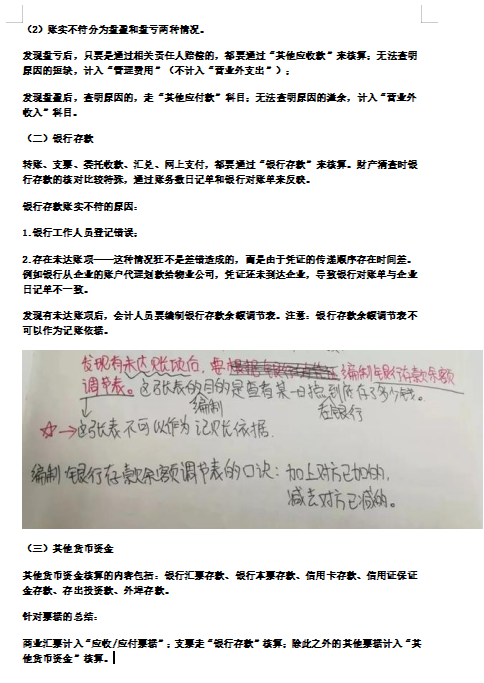 （2）账实不符分为盘盈和盘亏两种情况。
发现盘亏后，只要是通过相关责任人赔偿的，都要通过“其他应收款”来核算；无法查明
原因的短缺，计入“管理费用”（不计入“营业外支出”）；
发现盘盈后，查明原因的，走“其他应付款”科目；无法查明原因的溢余，计入“营业外
收入”科目。
（二）银行存款
转账、支票、委托收款、汇兑、网上支付，都要通过“银行存款”来核算。财产清查时银
行存款的核对比较特殊，通过账务数日记单和银行对账单来反映。
银行存款账实不符的原因：
1.银行工作人员登记错误；
2.存在未达账项——这种情况并不是差错造成的，而是由于凭证的传递顺序存在时间差。
例如银行从企业的账户代理划款给物业公司，凭证还未到达企业，导致银行对账单与企业
日记单不一致。
发现有未达账项后，会计人员要编制银行存款余额调节表。注意：银行存款余额调节表不
可以作为记账依据。
发现有未达账项后，要 编制银行存款余额
调节表。这张表的目的是查看某一日 到底存了多少钱。
编制 在银行
☆→这张表不可以作为记账依据.
编制银行存款余额调节表的口诀：加上对方已加的，
减去对方已减的。
（三）其他货币资金
其他货币资金核算的内容包括：银行汇票存款、银行本票存款、信用卡存款、信用证保证
金存款、存出投资款、外埠存款。
针对票据的总结：
商业汇票计入“应收/应付票据”；支票走“银行存款”核算；除此之外的其他票据计入“其
他货币资金”核算。